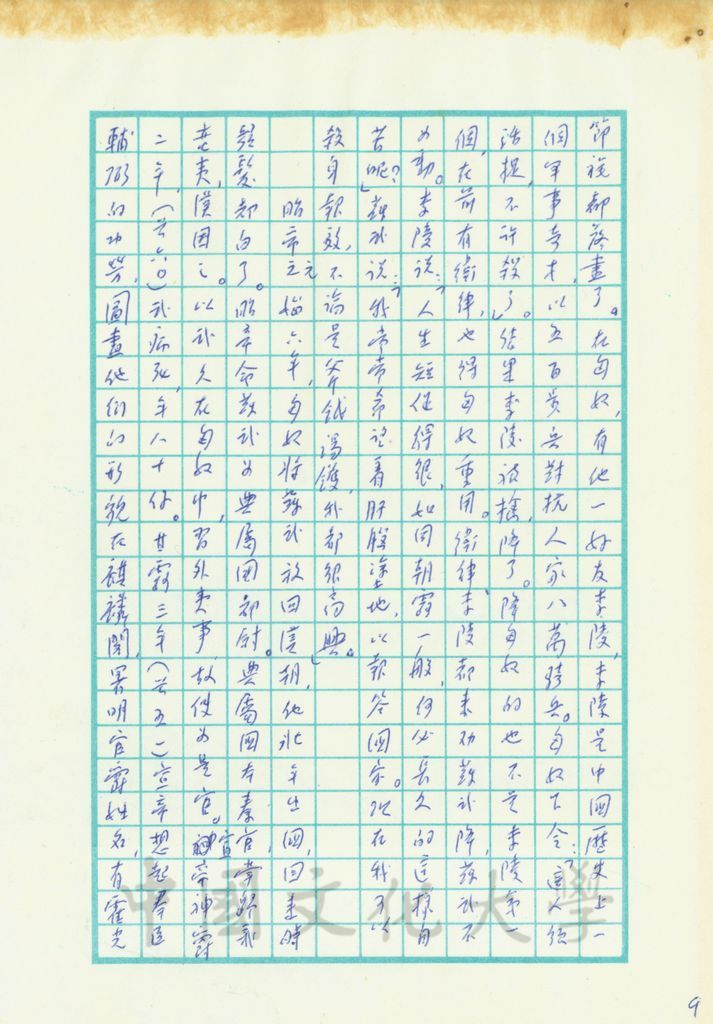 節旄都落盡了。在匈奴，有他一好友李陵，李陵是中國歷史上一
個軍事奇才，以五百黃兵對抗人家八萬騎兵。匈奴下令：「這人須
活捉，不許殺了。」結果李陵被擒，降了。降匈奴的也不是李陵第一
個，在前有衛律，也得匈奴重用。衛律、李陵都來勸蘇武降，蘇武不
為動。李陵說：「人生短促得很，如同朝露一般，何必長久的這樣自
苦呢？」蘇武說：「我常常希望着肝腦塗地，以報答國家。現在我可以
殺身報效，不論是斧鉞湯鑊，我都很高興。」
昭帝之元始六年，匈奴將蘇武放回漢朝，他壯年出國，回來時
鬚髮都白了。昭帝命蘇武為典屬國都尉。典屬國本秦官掌歸義
蠻夷，漢因之。以武久在匈奴中，習外夷事，故使為是官。宣帝神露
二年，（前六〇）武病死，年八十餘。甘露三年（前五一）宣帝想起羣臣
輔弼的功勞，圖畫他們的形貌在麒麟閣，署明官爵姓名，有霍光
中國文化大學
9